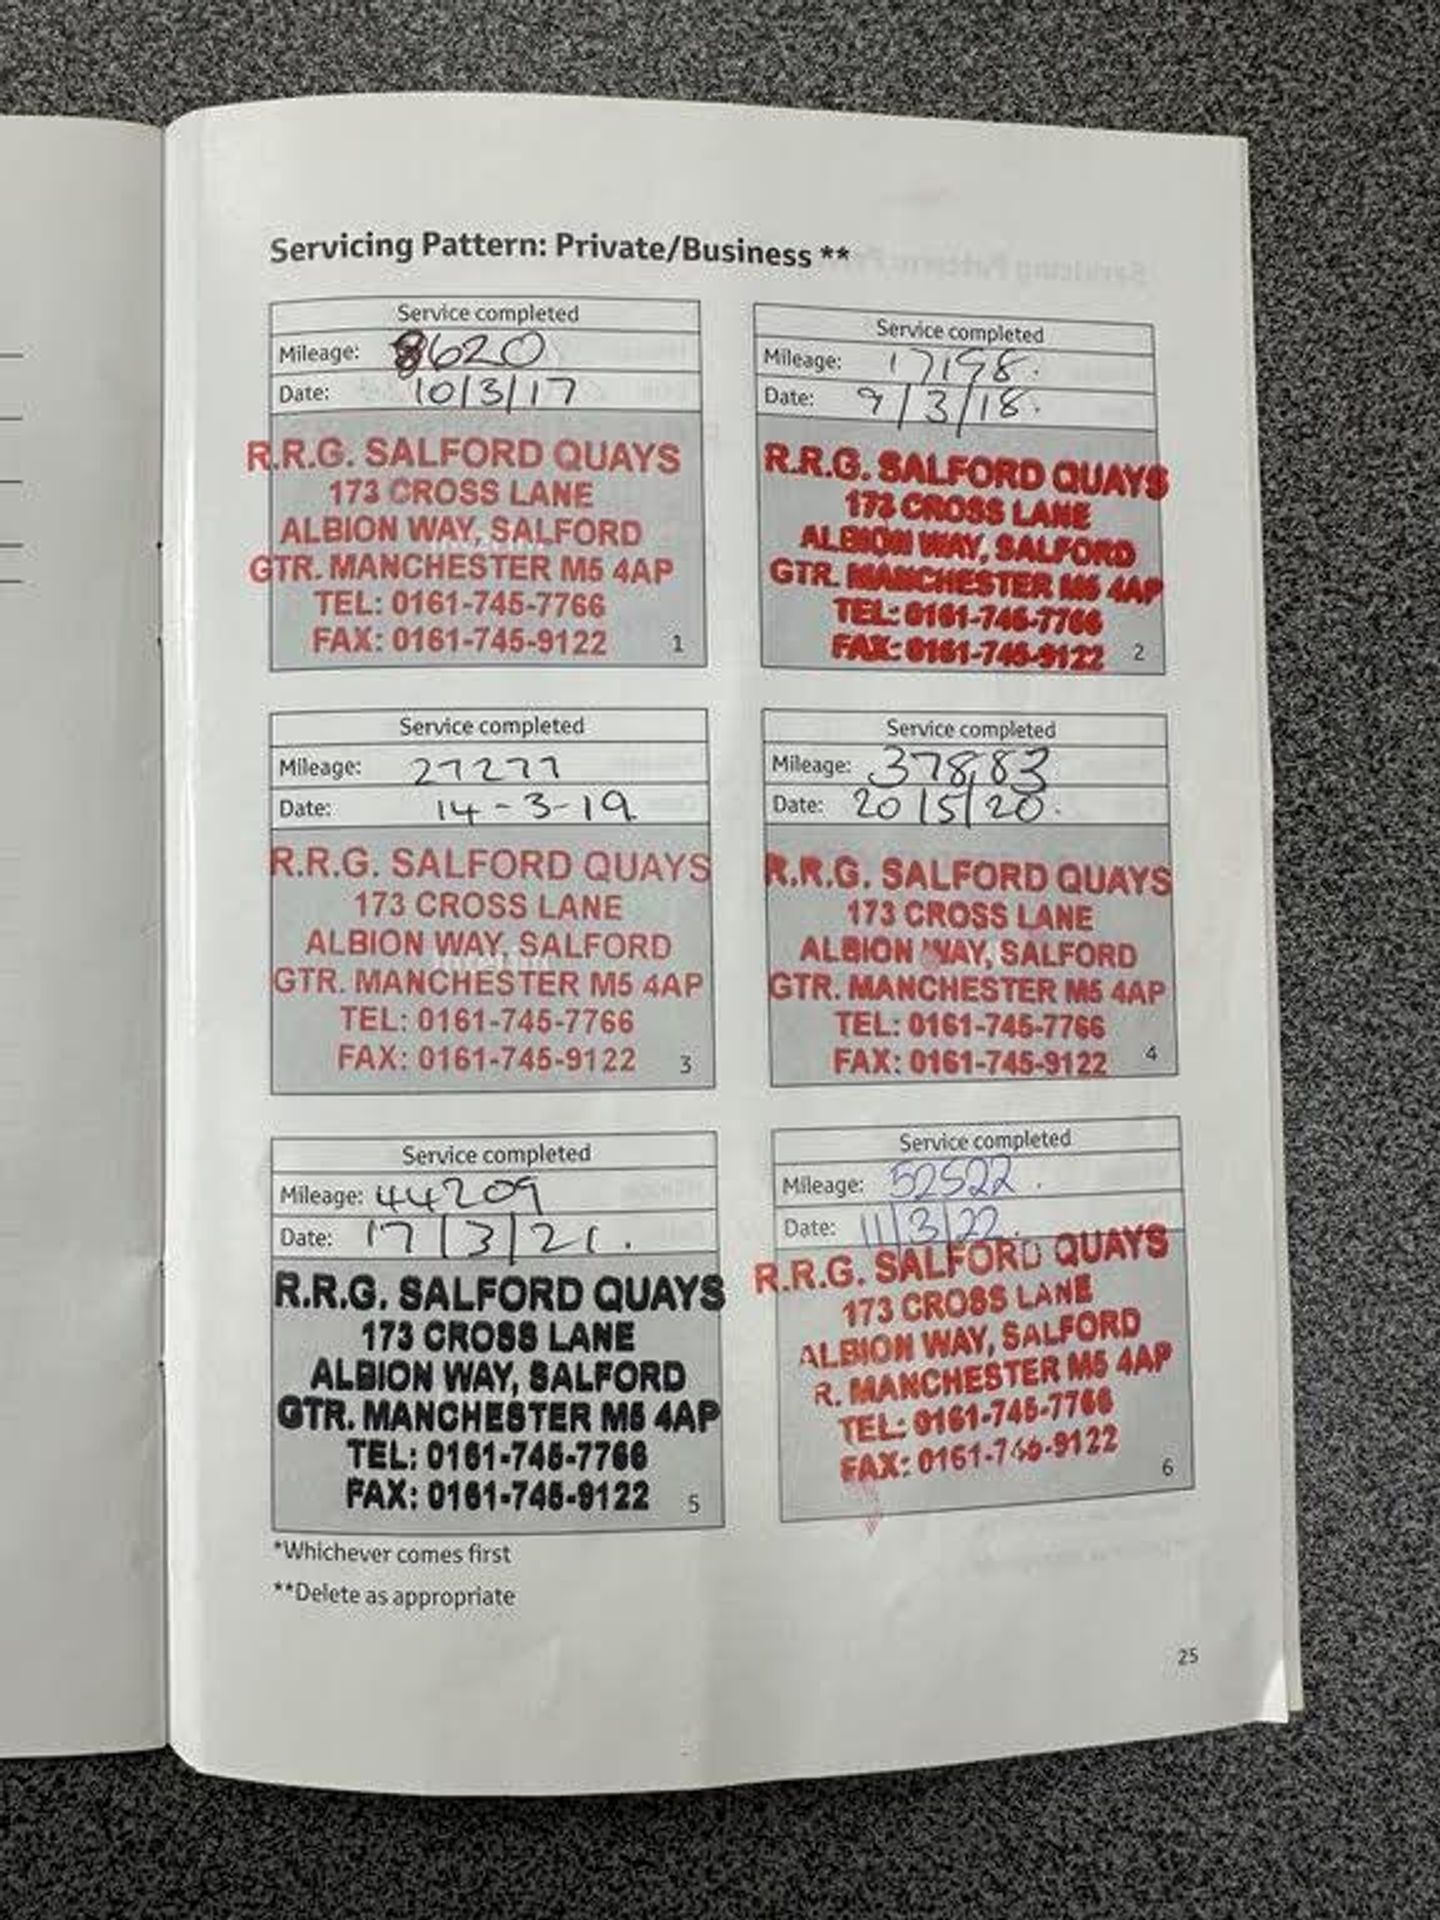 Servicing Pattern: Private/Business **
Service completed
Mileage: 8620
Date: 10/3/17
R.R.G. SALFORD QUAYS
173 CROSS LANE
ALBION WAY, SALFORD
GTR. MANCHESTER M5 4AP
TEL: 0161-745-7766
FAX: 0161-745-9122
1
Service completed
Mileage: 17198.
Date: 9/3/18.
R.R.G. SALFORD QUAYS
173 CROSS LANE
ALBION WAY, SALFORD
GTR. MANCHESTER M5 4AP
TEL: 0161-745-7766
FAX: 0161-745-9122
2
Service completed
Mileage: 27277
Date: 14-3-19
R.R.G. SALFORD QUAYS
173 CROSS LANE
ALBION WAY, SALFORD
GTR. MANCHESTER M5 4AP
TEL: 0161-745-7766
FAX: 0161-745-9122
3
Service completed
Mileage: 37883
Date: 20/5/20.
R.R.G. SALFORD QUAYS
173 CROSS LANE
ALBION WAY, SALFORD
GTR. MANCHESTER M5 4AP
TEL: 0161-745-7766
FAX: 0161-745-9122
4
Service completed
Mileage: 44209
Date: 17/3/21.
R.R.G. SALFORD QUAYS
173 CROSS LANE
ALBION WAY, SALFORD
GTR. MANCHESTER M5 4AP
TEL: 0161-745-7766
FAX: 0161-745-9122
5
Service completed
Mileage: 52522.
Date: 11/3/22.
R.R.G. SALFORD QUAYS
173 CROSS LANE
ALBION WAY, SALFORD
R. MANCHESTER M5 4AP
TEL: 0161-745-7766
FAX: 0161-745-9122
6
*Whichever comes first
**Delete as appropriate
25